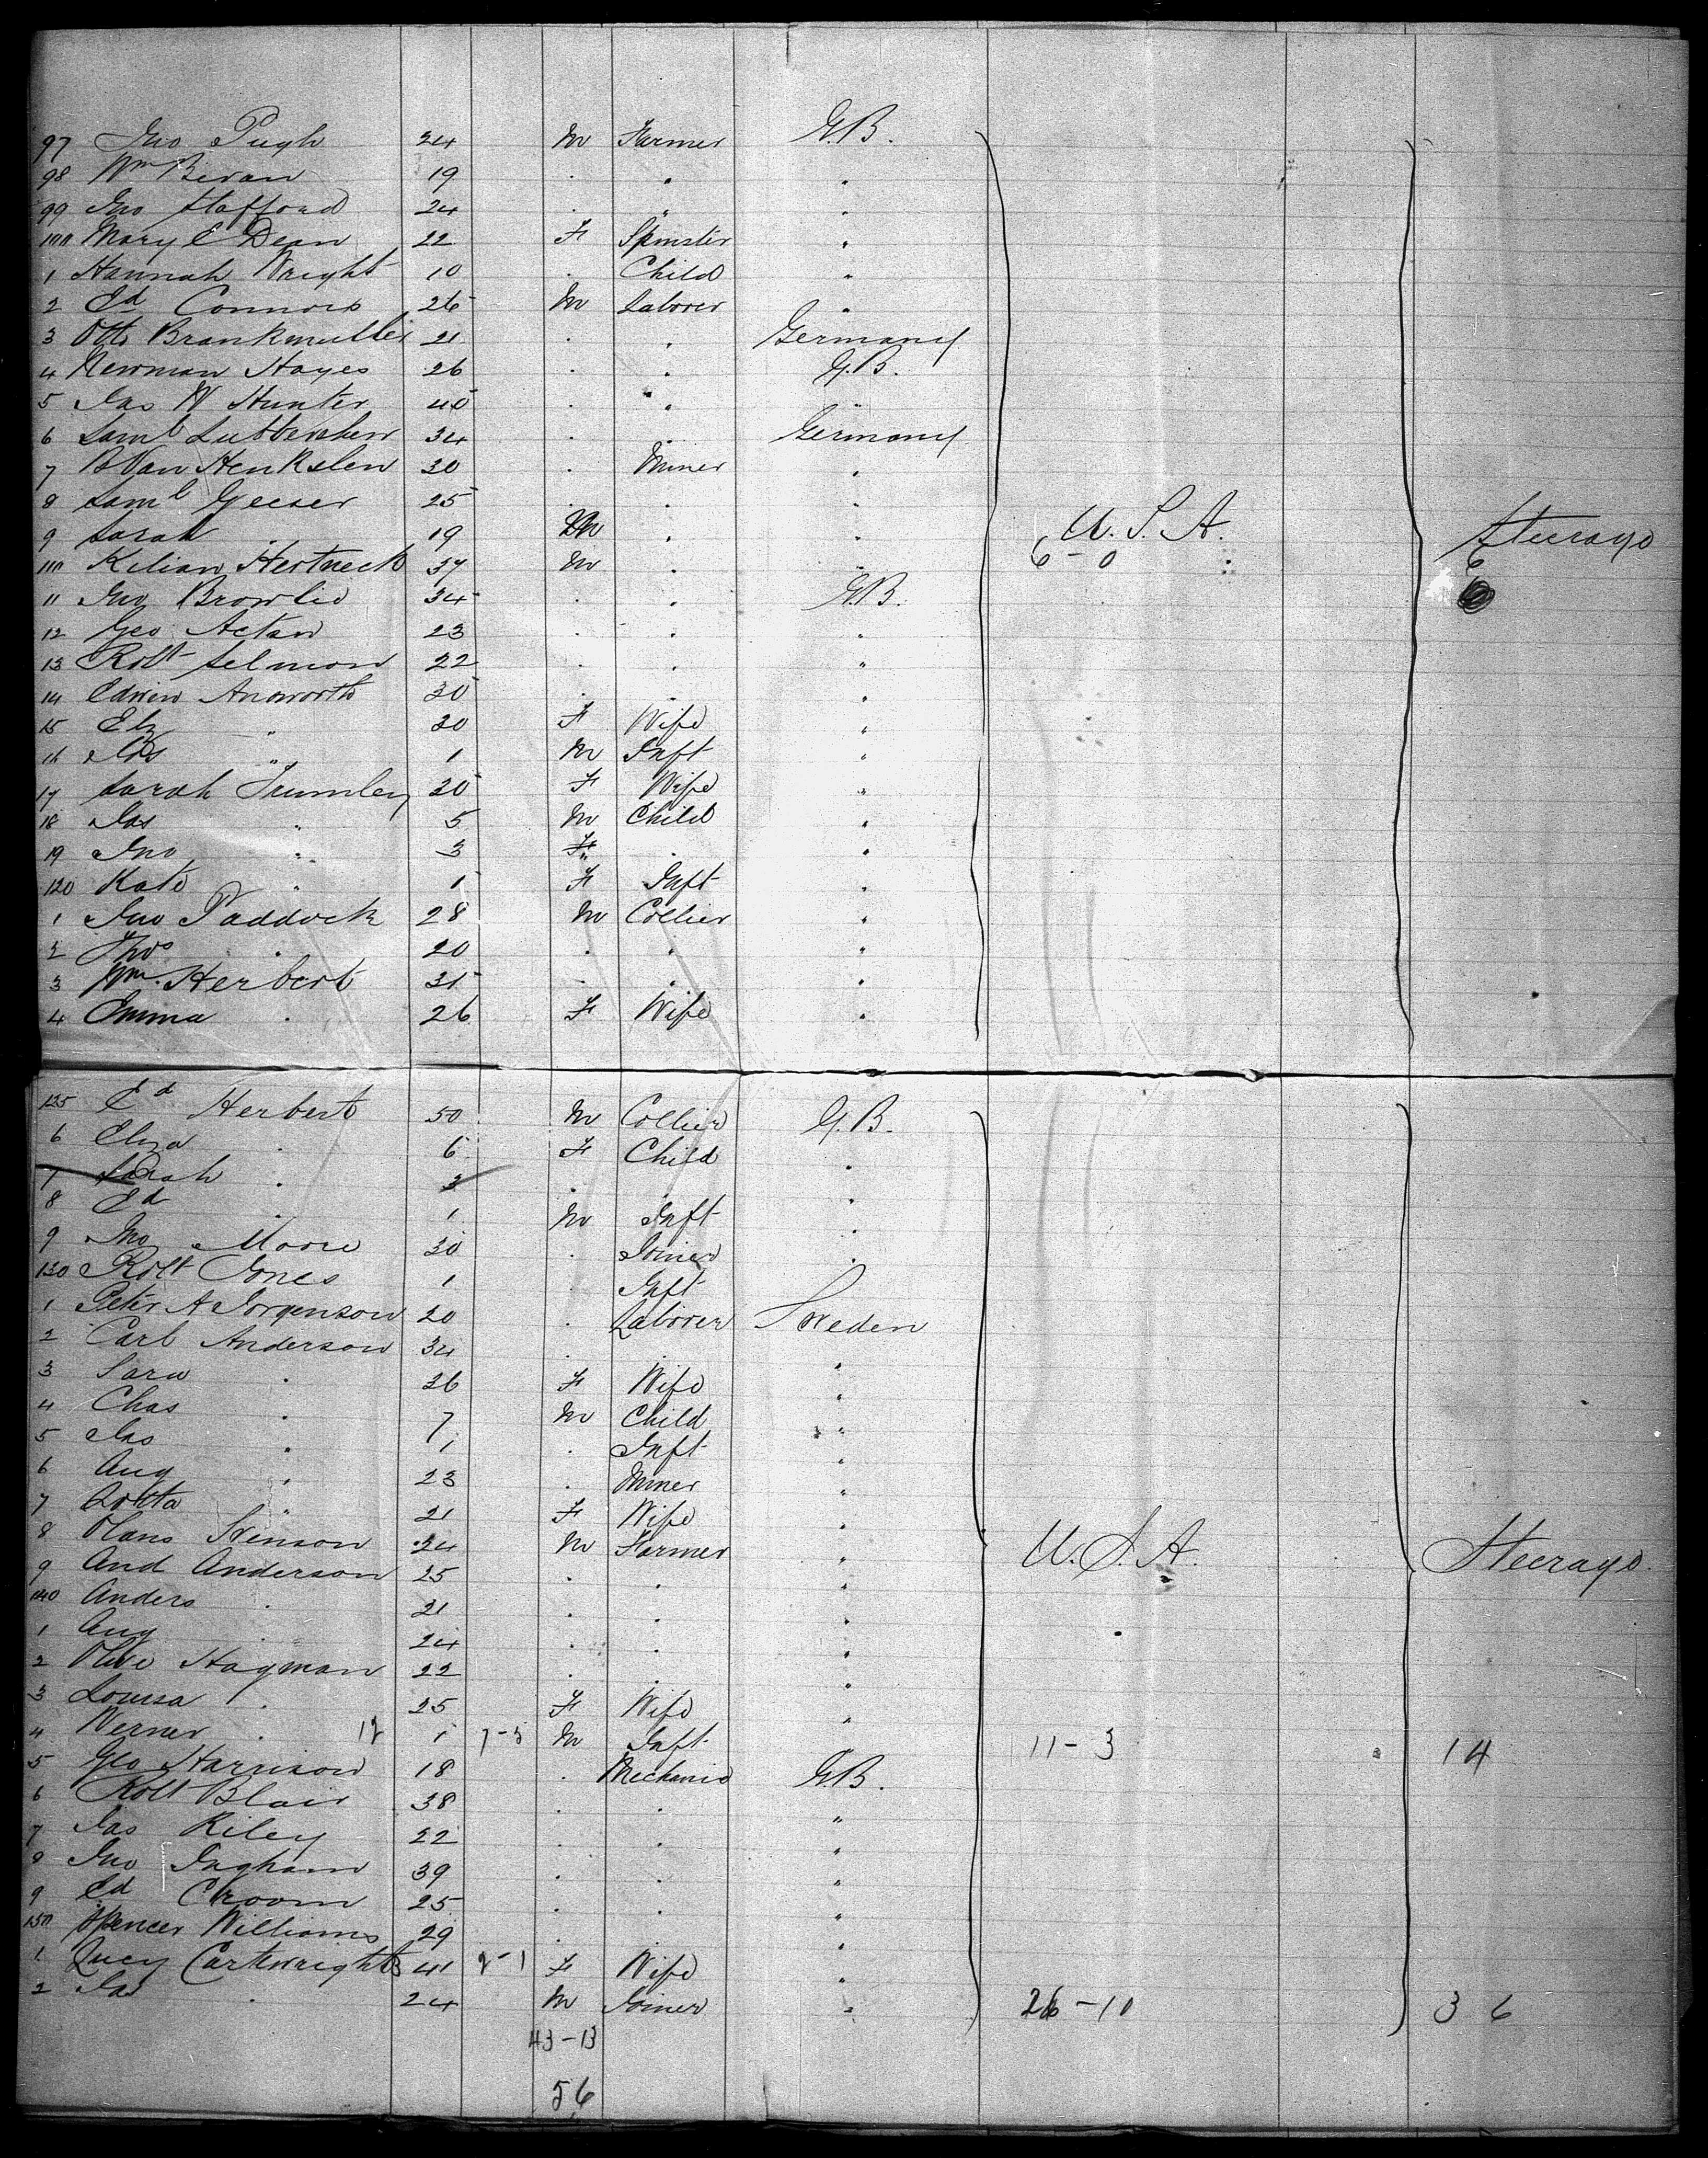 97 Jno Pugh 24 M Farmer G.B.
98 Wm Bevan 19 . " "
99 Jno Stafford 24 . " "
100 Mary E Dean 22 F Spinster "
1 Hannah Wright 10 . Child "
2 Ed Connors 26 M Laborer "
3 Otto Brankmuller 21 . " Germany
4 Newman Hayes 26 . " G.B.
5 Jas W Hunter 40 . " "
6 Saml 34 . . Germany
7 B Van Henkslen 30 . Miner "
8 Saml Geeser 25 . . "
9 Sarah . 19 M . " U.S.A. Steerage
110 Kilian Hertneck 37 M . " 6-0 6
11 Jno Browlie 34 . . G.B.
12 Geo Actan 23 . . "
13 Robt Selmon 22 . . "
14 Edwin Answorth 30 . . "
15 Elz " 20 F Wife "
16 Jas " 1 M Inft "
17 Sarah Trumley 30 F Wife "
18 Jas " 5 M Child "
19 Jno " 3 F " . "
120 Kate " 1 F Inft "
1 Jno Paddock 28 M Collier "
2 Thos . 20 . . "
3 Wm. Herbert 31 . . "
4 Emma . 26 F Wife "
125 Ed Herbert 50 M Collier G.B.
6 Eliza . 6 F Child "
7 Sarah . 3 . . "
8 Ed . 1 M Inft "
9 Jno Moore 30 . Joiner "
130 Robt Jones 1 . Inft
1 Peter A Jorgenson 20 . Laborer Sweden
2 Carl Anderson 34 . . "
3 Sara . 26 F Wife "
4 Chas . 7 M Child "
5 Jas " 1 . Inft "
6 Aug " 23 . Miner "
7 Lotta " 21 F Wife "
8 Hans Svenson 24 M Farmer " U.S.A. Steerage
9 And Anderson 25 . . "
140 Anders . 21 . . "
1 Aug . 24 . . "
2 Olive Hagman 22 . . "
3 Louisa . 25 F Wife "
4 Werner . 12 1 7-5 M Inft 11-3 14
5 Geo Harrison 18 . Mechanic G.B.
6 Robt Blair 38 . . "
7 Jas Riley 22 . . "
8 Jno Ingham 39 . . "
9 Ed Croom 25 . . "
150 Spencer Williams 29 . . "
1 Lucy Cartwright 41 2-1 F Wife "
2 Jas . 24 M Joiner " 26-10 36
43-13
56